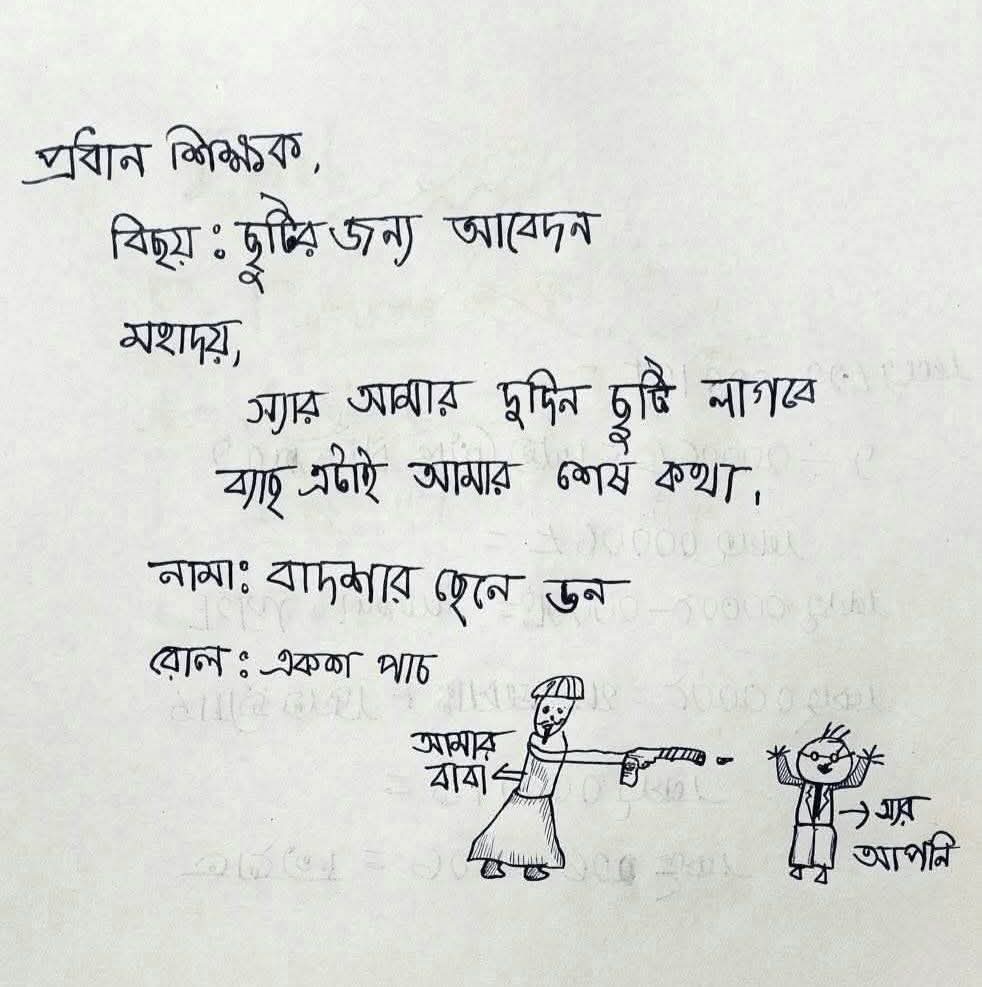 প্রধান শিক্ষক,
বিছয় : ছুটির জন্য আবেদন
মহাদয়,
স্যার আমার দুদিন ছুটি লাগবে
ব্যাছ এটাই আমার শেষ কথা,
নামা: বাদশার ছেলে ডন
রোল : একশ পাচ
আমার
বাবা
স্যর
আপনি